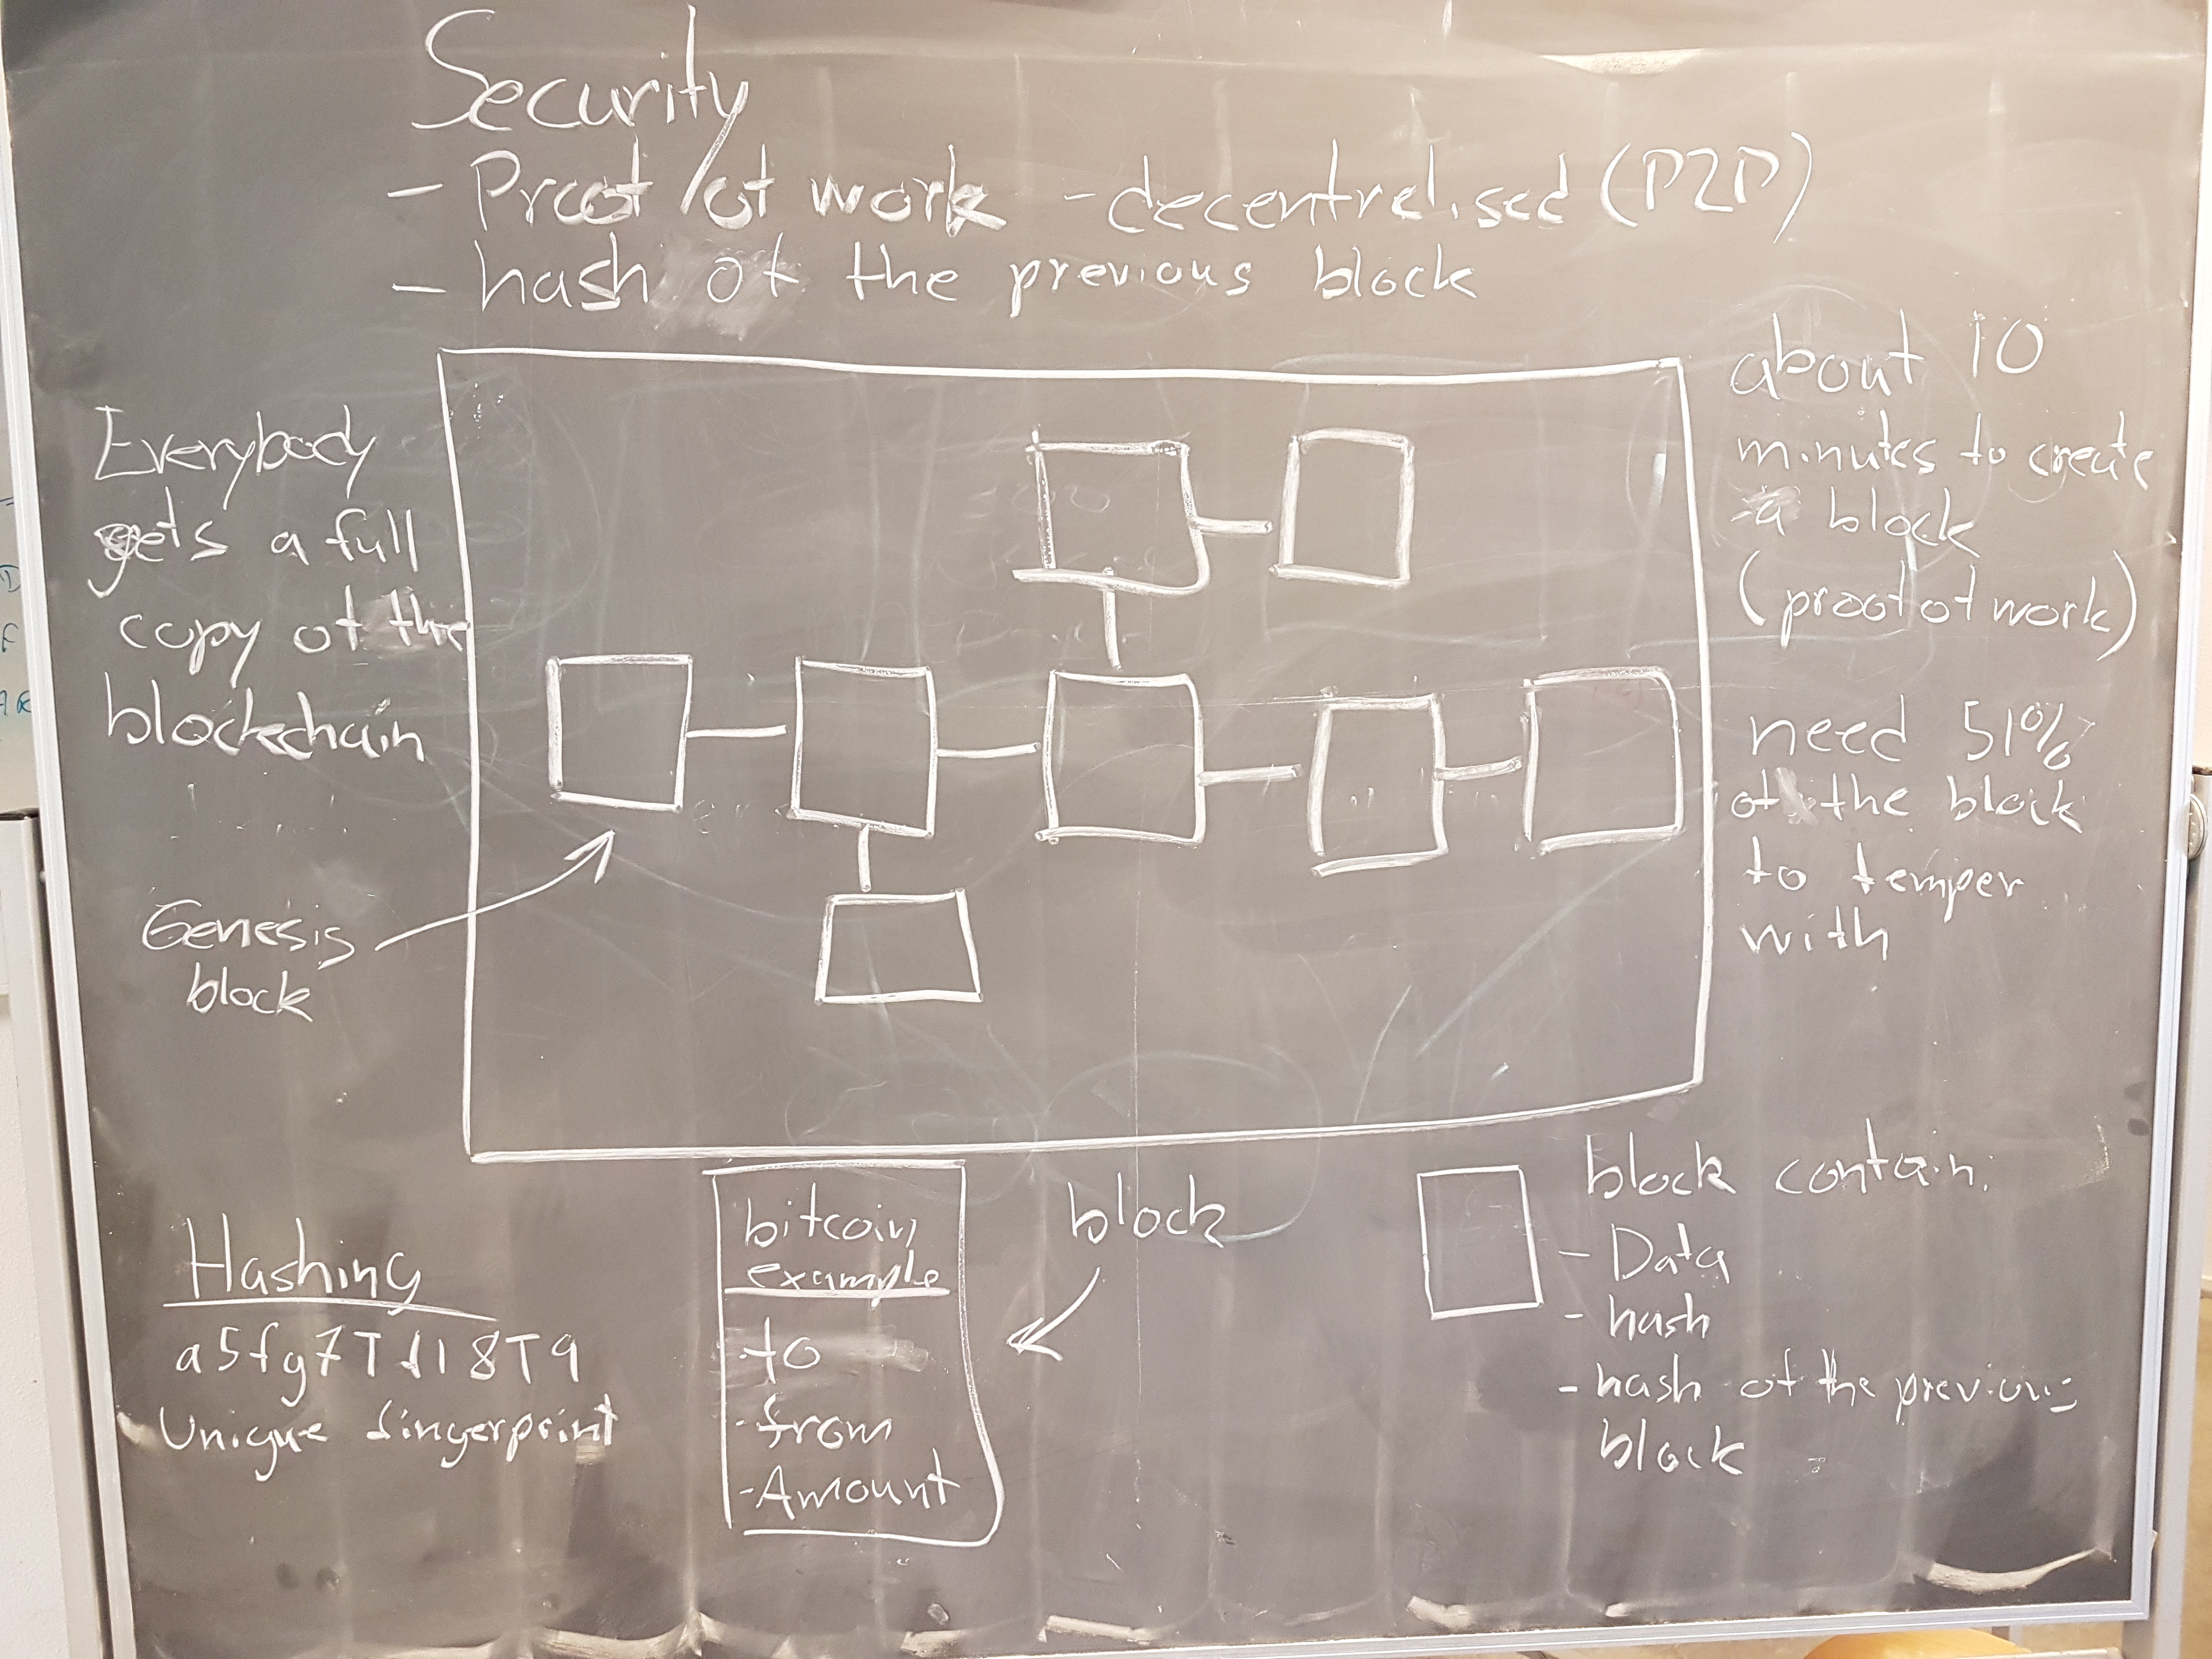 Security
- Proof of work - decentralised (P2P)
- hash of the previous block
Everybody
gets a full
copy of the
blockchain
Genesis
block
about 10
minutes to create
a block
(proof of work)
need 51%
of the block
to temper
with
Hashing
a5fg7Tf18T9
Unique fingerprint
bitcoin
example
-to
-from
-Amount
block
block contain:
- Data
- hash
- hash of the previous
block